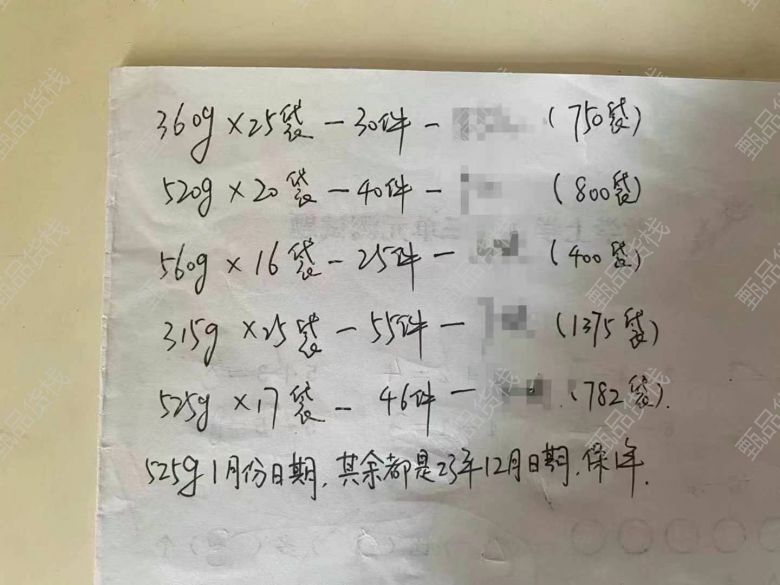 360g×25袋－30件－(750袋)
520g×20袋－40件－(800袋)
560g×16袋－25件－(400袋)
315g×25袋－55件－(1375袋)
525g×17袋－46件－(782袋).
525g1月份日期,其余都是23年12月日期,保1年.
甄品货栈
甄品货栈
甄品货栈
甄品货栈
甄品货栈
甄品货栈